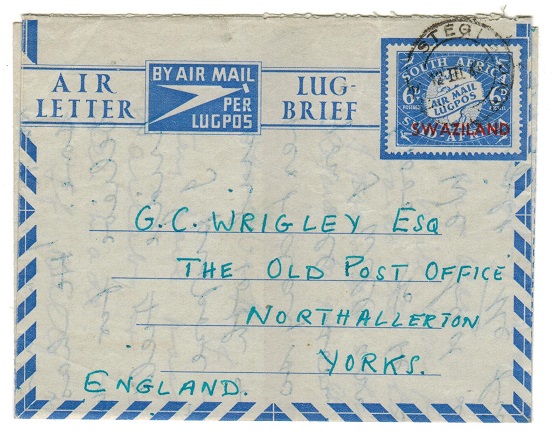 AIR LETTER
BY AIR MAIL
PER LUGPOS
LUG-BRIEF
STEGI
12 III
SOUTH AFRICA
6D
POSTAGE
AIR MAIL
LUGPOS
SWAZILAND
G.C. WRIGLEY ESQ
THE OLD POST OFFICE
NORTHALLERTON
YORKS.
ENGLAND.